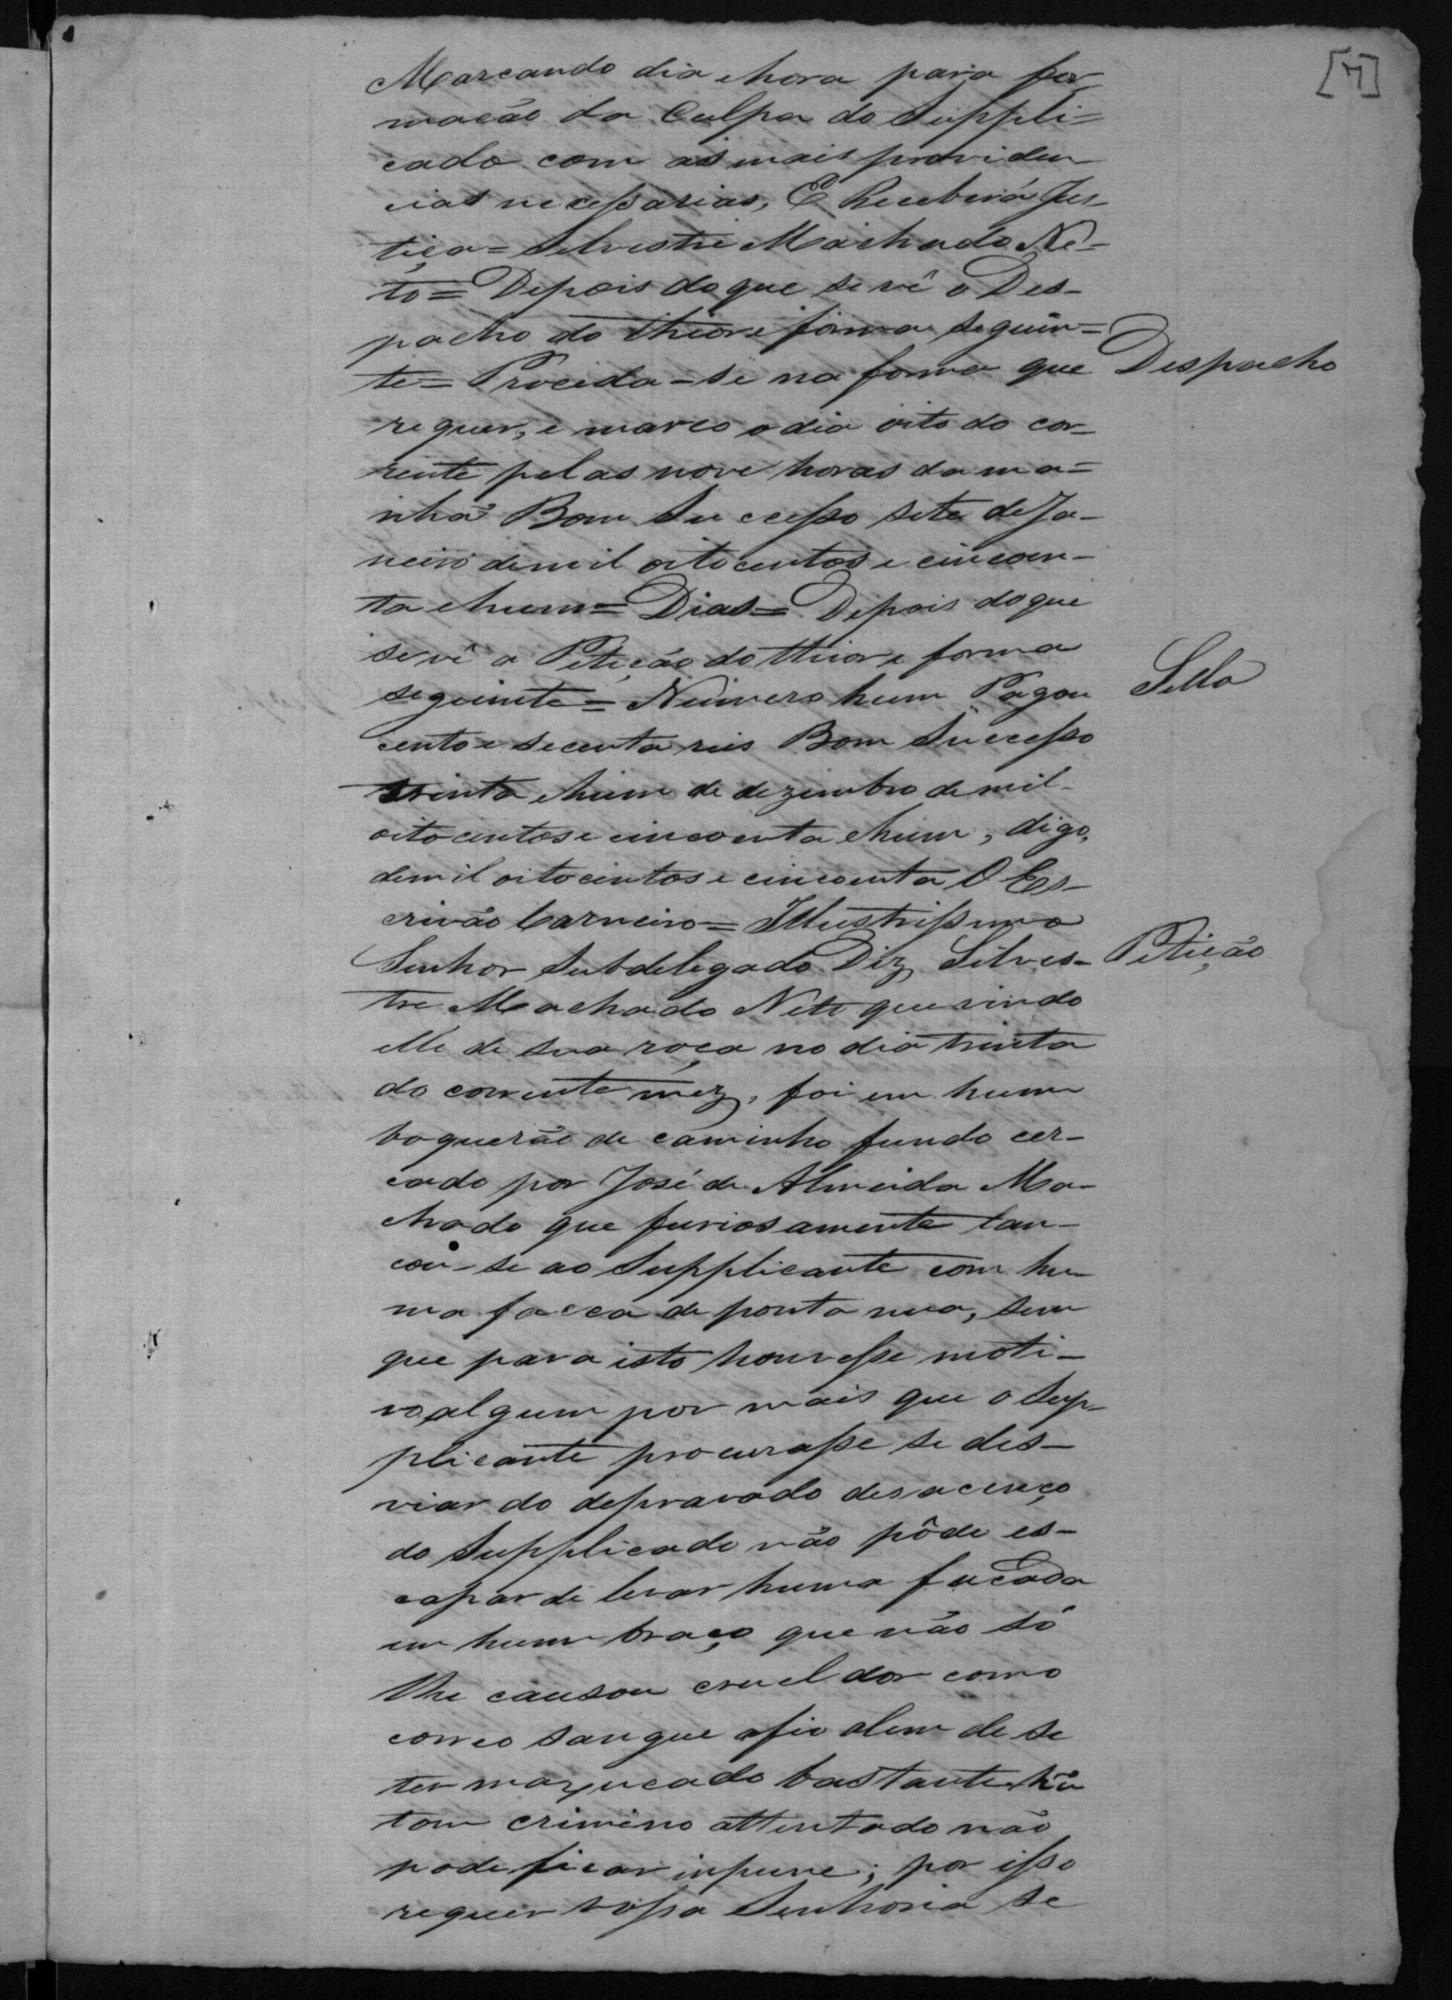 [7]
Marcando dia e hora para for-
mação da Culpa do Suppli=
cado com as mais providen-
cias necessarias, E Receberá Jus-
tiça = Silvestre Machado Ne-
to = Depois do que se vê o Des-
pacho do theor e forma seguin=
te = Proceda-se na forma que
Despacho
requer, e marco o dia oito do cor-
rente pelas nove horas da ma=
nhã Bom Successo sete de Ja-
neiro de mil oito centos e cincoen-
ta e hum = Dias = Depois do que
se vê a Petição do theor e forma
seguinte = Número hum Pagou
Sello
cento e secenta reis Bom Successo
trinta e hum de dezembro de mil
oito centos e cincoenta e hum, digo,
de mil oito centos e cincoenta O Es-
crivão Carneiro = Illustrissimo
Senhor Subdelegado Diz Silves-
Petição
tre Machado Neto que vindo
elle de sua roça no dia trinta
do corrente mez, foi em hum
boquerão de caminho fundo cer-
cado por José de Almeida Ma-
chado que furiosamente lan-
cou-se ao Supplicante com hu-
ma facca de ponta nua, sem
que para isto houvesse moti-
vo algum por mais que o Sup-
plicante procurasse se des-
viar do depravado desacenço
do Supplicado não pôde es-
capar de levar huma facada
em hum braço que não só
lhe causou cruel dor como
correo sangue a fio alem de se
ter maxucado bastante hũ
tam crimino attentado não
pode ficar inpune; por isso
requer vossa Senhoria se